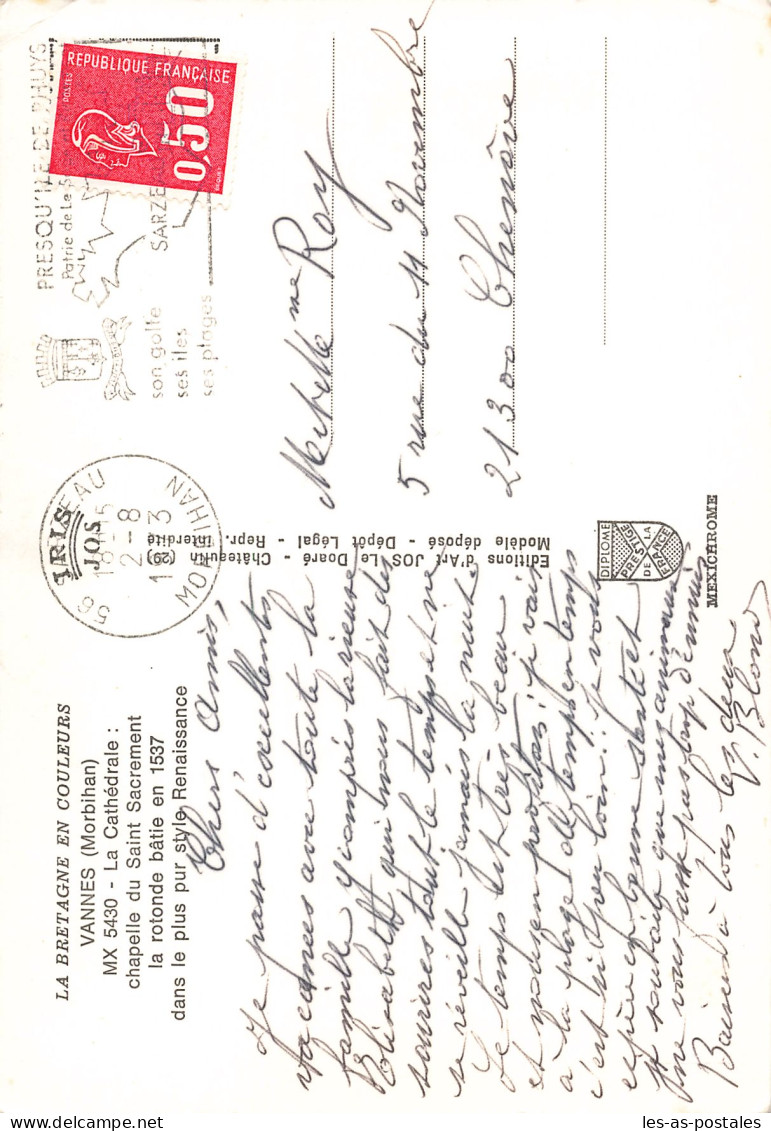 LA BRETAGNE EN COULEURS
VANNES (Morbihan)
MX 5430 - La Cathédrale :
chapelle du Saint Sacrement
la rotonde bâtie en 1537
dans le plus pur style Renaissance
Chers Amis,
Je passe d'excellentes
vacances avec toute la
famille y compris la joyeuse
Elisabeth qui nous fait des
sourires tout le temps et ne
se réveille jamais la nuit
Le temps est très beau
et nous en profitons : je vais
à la plage de temps en temps
c'est si peu loin !! Je vous
espère en bonne santé et
souhaite que mes animaux
ne vous fassent pas trop d'ennuis
Baisers à tous les deux
Y. Blond
56 SARZEAU
18H15
2-8
MORBIHAN
IRIS
JOS
PRESQU'ILE DE RHUYS
Patrie de Le
SARZE
son golfe
ses iles
ses plages
REPUBLIQUE FRANÇAISE
POSTES
0,50
BEQUET
Mr et Mme Roy
5 rue du 11 Novembre
21300 Chenôve
Editions d'Art JOS Le Doaré - Châteaulin (29)
Modèle déposé - Dépôt Légal - Repr. Interdite
DIPLOME
PRESTIGE
DE LA
FRANCE
MEXICHROME
les-as-postales